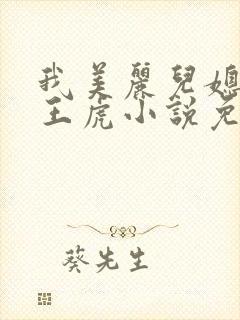 我美麗兒媳
王虎小說免
葵先生